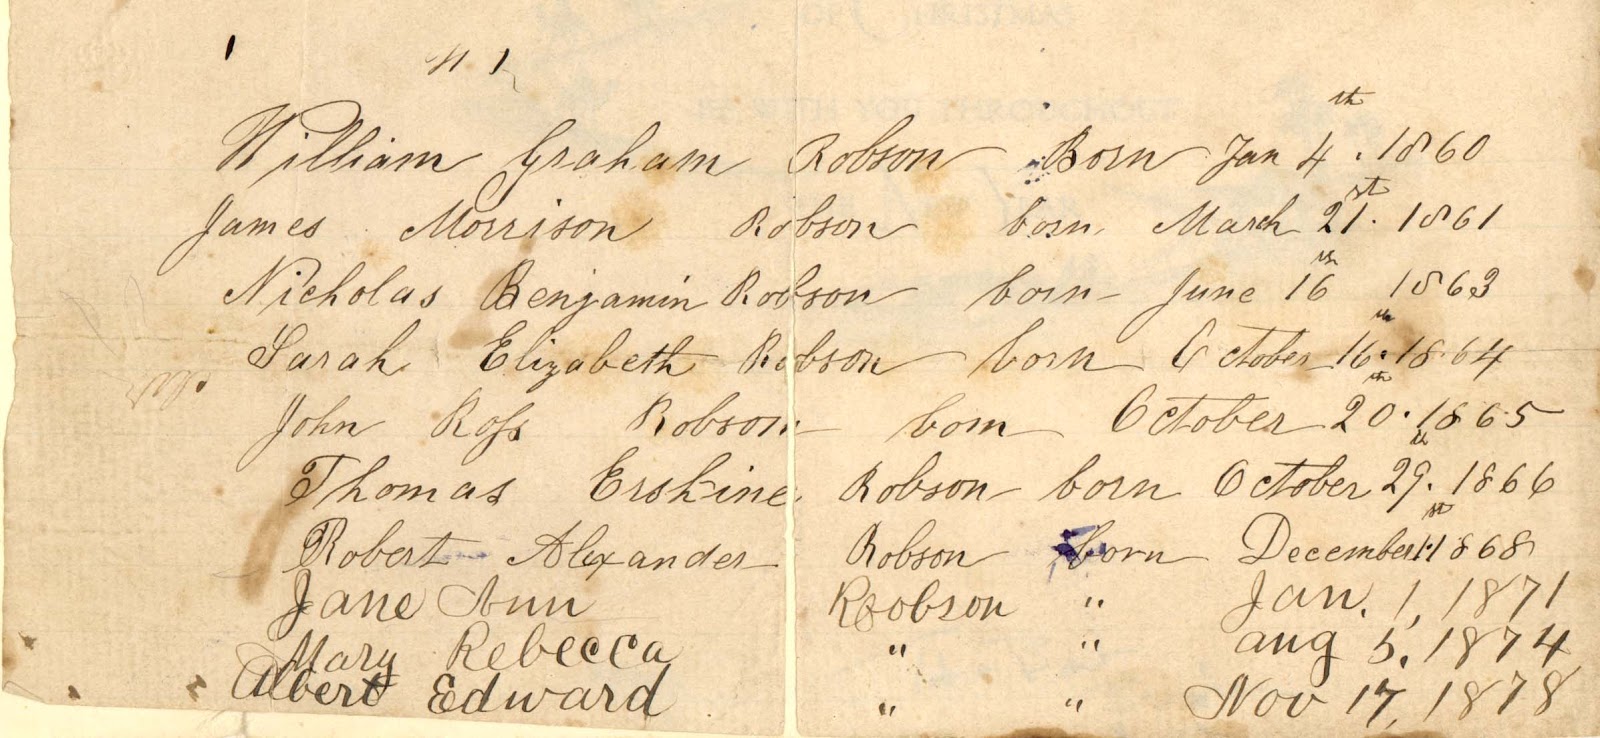 CHRISTMAS
BE WITH YOU THROUGHOUT
William Graham Robson Born Jan 4th. 1860
James Morrison Robson born March 21st. 1861
Nicholas Benjamin Robson born June 16th 1863
Sarah Elizabeth Robson born October 16th. 1864
John Ross Robson born October 20th. 1865
Thomas Erskine Robson born October 29th. 1866
Robert Alexander Robson born December 1st 1868
Jane Ann Robson " Jan. 1, 1871
Mary Rebecca " " aug 5, 1874
Albert Edward " " Nov 17, 1878